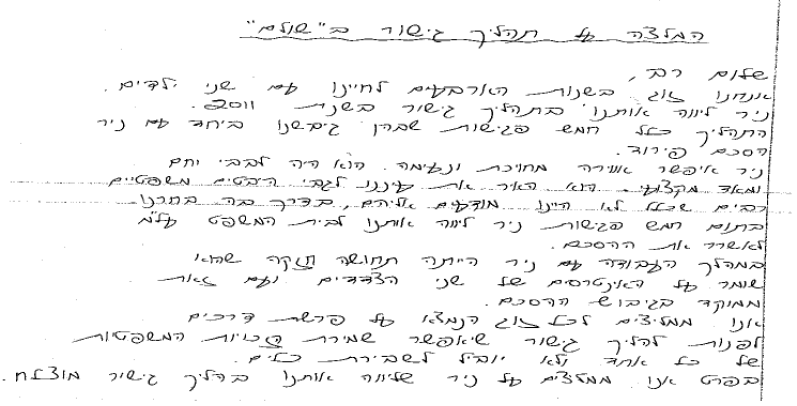 המלצה על תהליך גישור ב"שולם"
שלום רב,
אנחנו זוג בשנות הארבעים לחיינו עם שני ילדים.
ניר ליווה אותנו בתהליך גישור בשנת 2011.
התהליך כלל חמש פגישות שבהן גיבשנו ביחד עם ניר
הסכם פירוד.
ניר איפשר אווירה מחויכת ונעימה. הוא היה לבבי וחם
ומאוד מקצועי. הוא האיר את עיננו לגבי היבטים משפטיים
רבים שכלל לא היינו מודעים אליהם, בדרך בה בחרנו.
בתום חמש פגישות ניר ליווה אותנו לבית המשפט ע"מ
לאשרר את ההסכם.
במהלך העבודה עם ניר הייתה תחושה חזקה שהוא
שומר על האינטרסים של שני הצדדים ועם זאת
ממוקד בגיבוש ההסכם.
אנו ממליצים לכל זוג הנמצא על פרשת דרכים
לפנות להליך גישור שיאפשר שמירת זכויות המשפטיות
של כל אחד ולא יוביל לשבירת כלים.
בפרט אנו ממלצים על ניר שליווה אותנו בהליך גישור מוצלח.